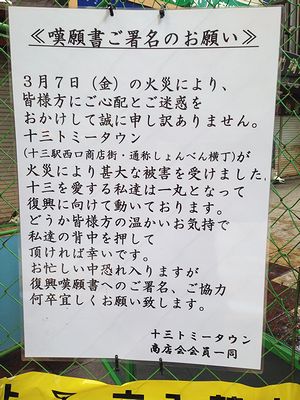 ≪嘆願書ご署名のお願い≫
3月7日（金）の火災により、
皆様方にご心配とご迷惑を
おかけして誠に申し訳ありません。
十三トミータウン
(十三駅西口商店街・通称しょんべん横丁)が
火災により甚大な被害を受けました。
十三を愛する私達は一丸となって
復興に向けて動いております。
どうか皆様方の温かいお気持で
私達の背中を押して
頂ければ幸いです。
お忙しい中恐れ入りますが
復興嘆願書へのご署名、ご協力
何卒宜しくお願い致します。
十三トミータウン
商店会会員一同